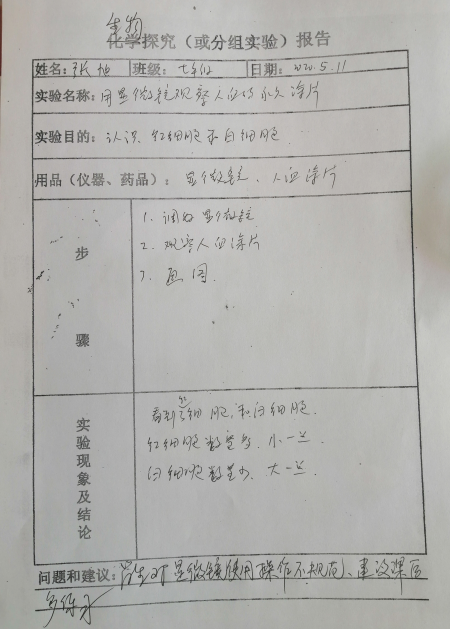 生物
化学探究（或分组实验）报告
姓名：张 班级：七年级 日期：2020.5.11
实验名称：用显微镜观察人血的永久涂片
实验目的：认识红细胞和白细胞
用品（仪器、药品）：显微镜、人血涂片
步骤
1. 调好显微镜
2. 观察人血涂片
3. 画图.
实验现象及结论
看到红细胞和白细胞.
红细胞数量多、小一些.
白细胞数量少、大一些.
问题和建议：学生对显微镜使用操作不规范、建议课后
多练习